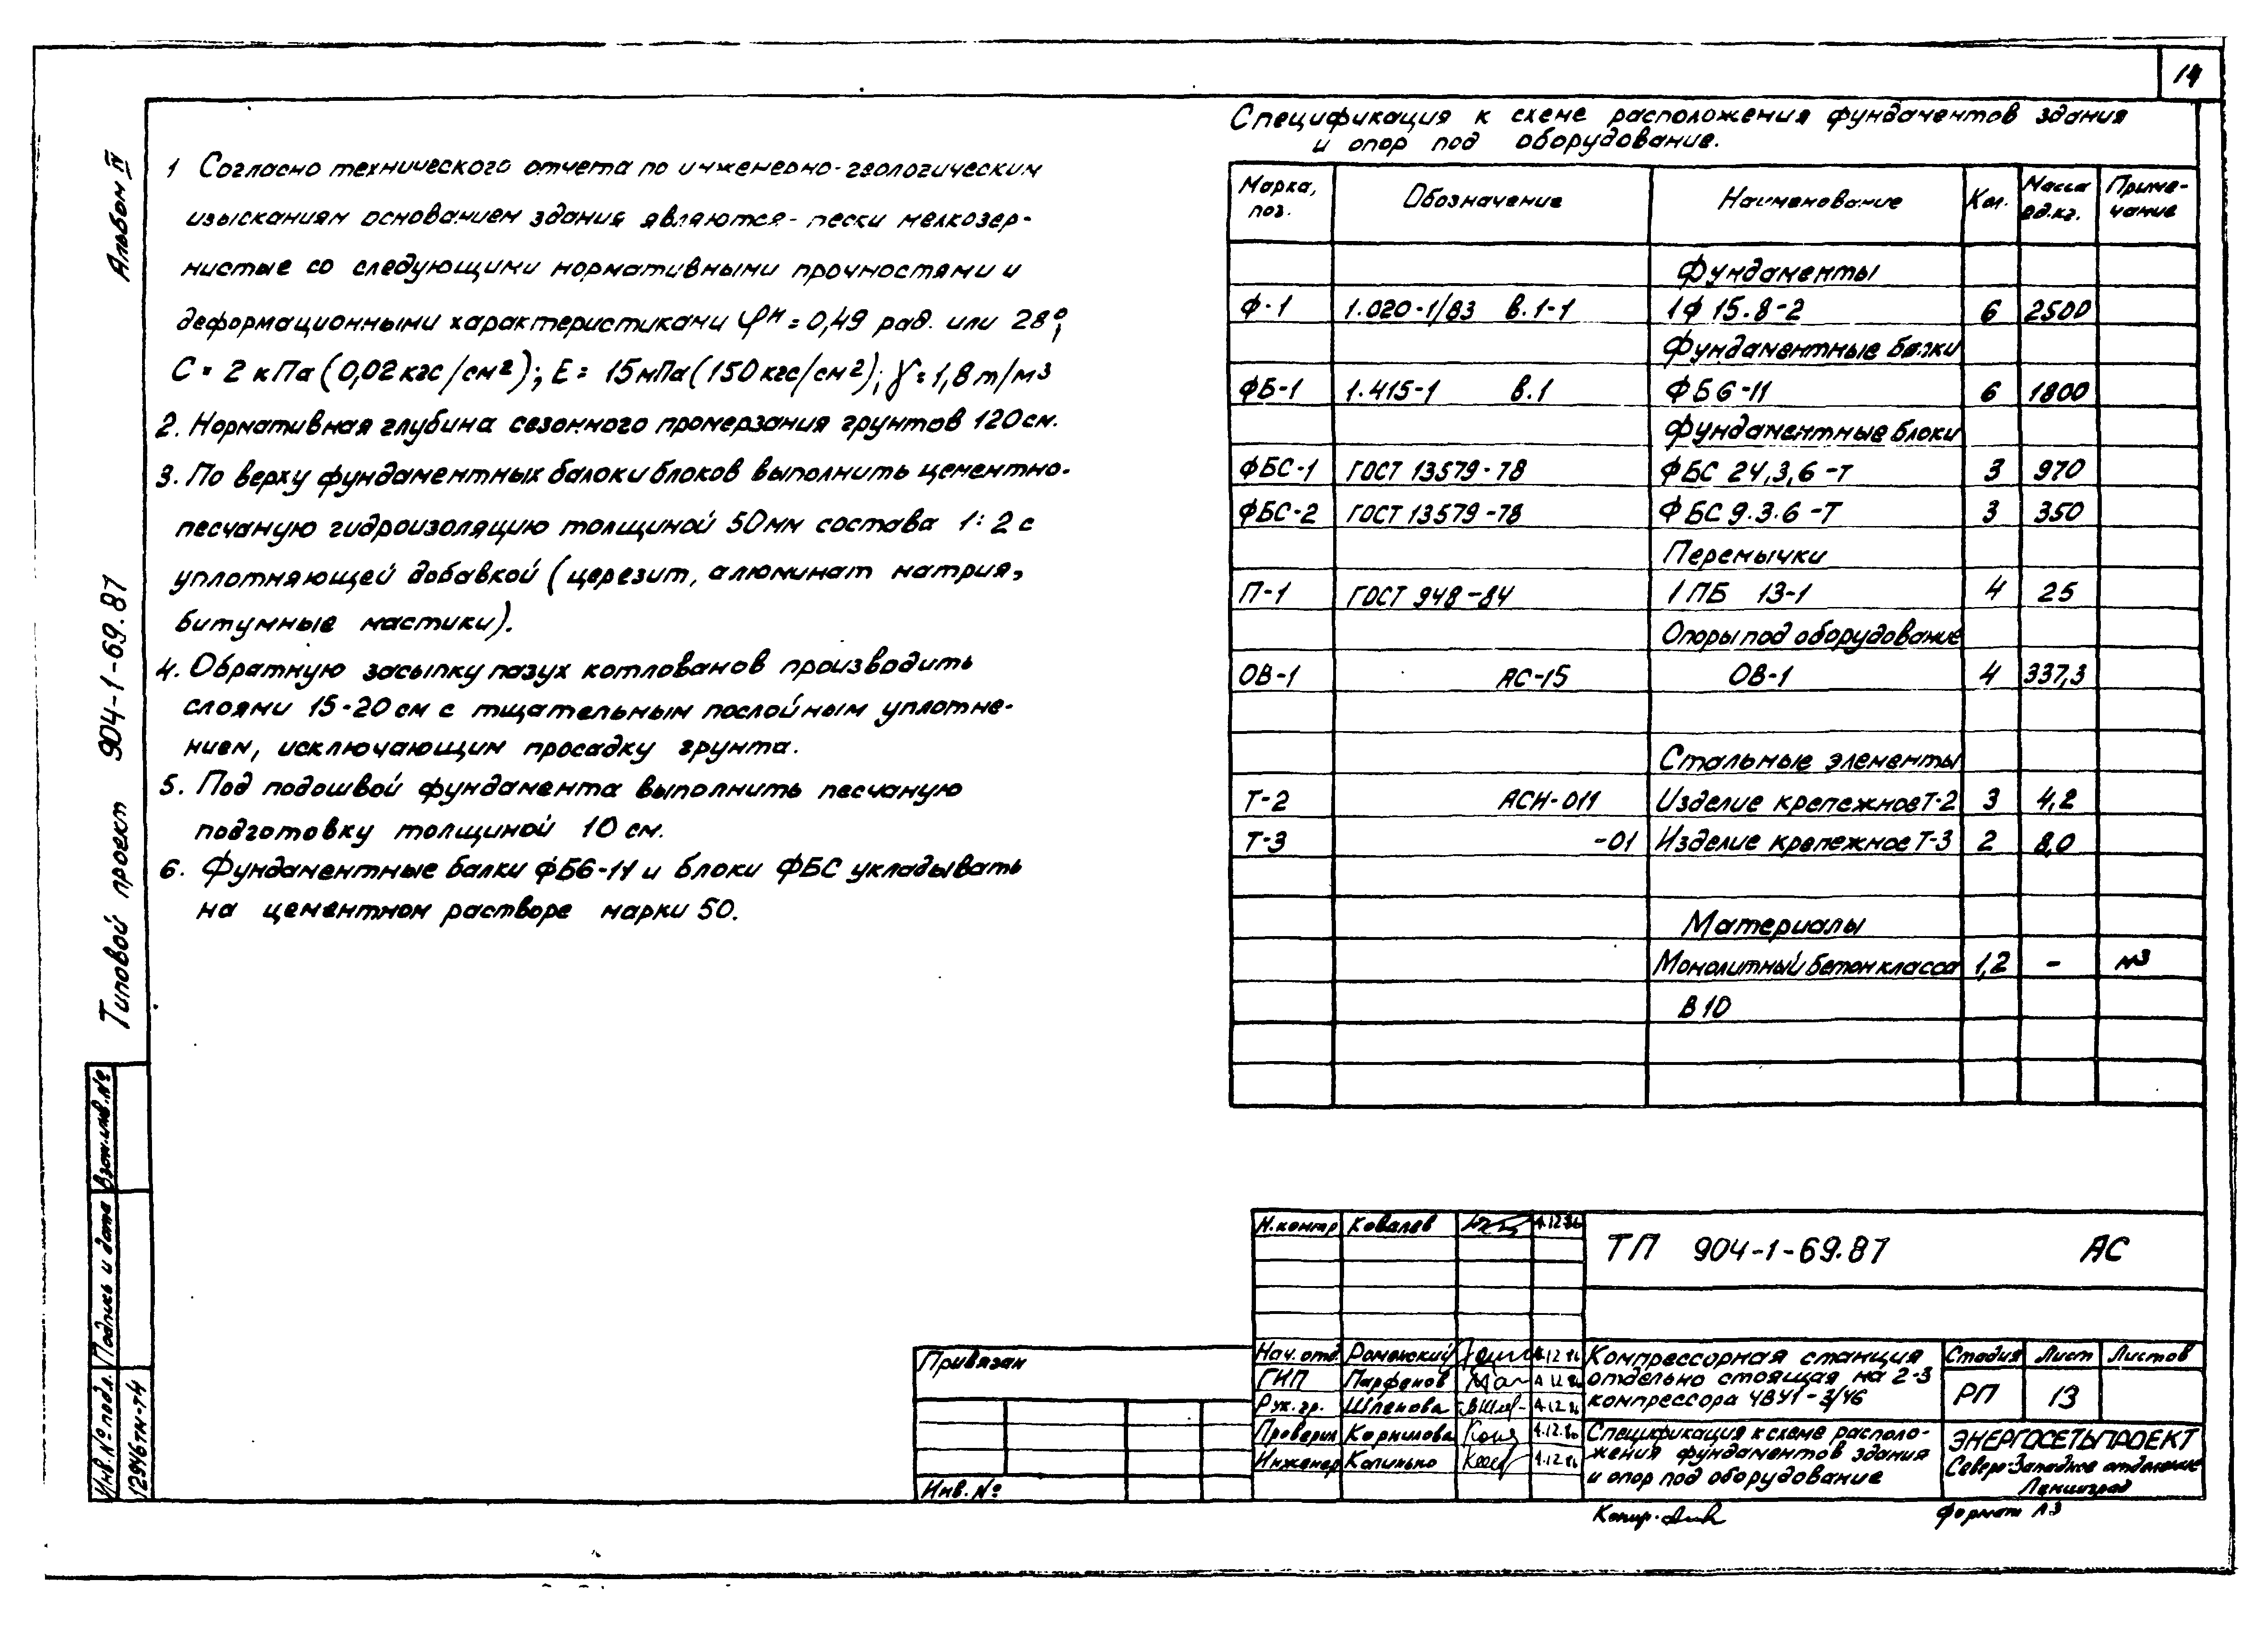 14
Альбом IV
Типовой проект 904-1-69.87
1 Согласно технического отчета по инженерно-геологическим
изысканиям основанием здания являются - пески мелкозер-
нистые со следующими нормативными прочностями и
деформационными характеристиками φн = 0,49 рад. или 28°;
С = 2 кПа (0,02 кгс/см2); Е = 15 мПа (150 кгс/см2); γ = 1,8 т/м3
2. Нормативная глубина сезонного промерзания грунтов 120 см.
3. По верху фундаментных балок и блоков выполнить цементно-
песчаную гидроизоляцию толщиной 50 мм состава 1:2 с
уплотняющей добавкой (церезит, алюминат натрия,
битумные мастики).
4. Обратную засыпку пазух котлованов производить
слоями 15-20 см с тщательным послойным уплотне-
нием, исключающим просадку грунта.
5. Под подошвой фундамента выполнить песчаную
подготовку толщиной 10 см.
6. Фундаментные балки ФБ6-11 и блоки ФБС укладывать
на цементном растворе марки 50.
Спецификация к схеме расположения фундаментов здания
и опор под оборудование.
Марка, поз. Обозначение Наименование Кол. Масса ед.кг. Приме-чание
Фундаменты
Ф-1 1.020-1/83 в.1-1 1Ф 15.8-2 6 2500
Фундаментные балки
ФБ-1 1.415-1 в.1 ФБ6-11 6 1800
Фундаментные блоки
ФБС-1 ГОСТ 13579-78 ФБС 24,3,6-т 3 970
ФБС-2 ГОСТ 13579-78 ФБС 9.3.6-Т 3 350
Перемычки
П-1 ГОСТ 948-84 1 ПБ 13-1 4 25
Опоры под оборудование
ОВ-1 АС-15 ОВ-1 4 337,3
Стальные элементы
Т-2 АСИ-011 Изделие крепежное Т-2 3 4,2
Т-3 -01 Изделие крепежное Т-3 2 8,0
Материалы
Монолитный бетон класса 1,2 - м3
В 10
Взам.инв.№
Подпись и дата
Инв.№ подл.
12946тм-т4
Привязан
Инв.№
Н.контр Ковалев 4.12.86
Нач.отд. Роменский 4.12.86
ГИП Парфенов 4.12.86
Рук.гр. Шленова 4.12.86
Проверил Корнилова 4.12.86
Инженер Калинько 4.12.86
ТП 904-1-69.87 АС
Компрессорная станция
отдельно стоящая на 2-3
компрессора 4ВУ1-3/46
Стадия Лист Листов
РП 13
Спецификация к схеме располо-
жения фундаментов здания
и опор под оборудование
ЭНЕРГОСЕТЬПРОЕКТ
Северо-Западное отделение
Ленинград
Копир.
Формат А3